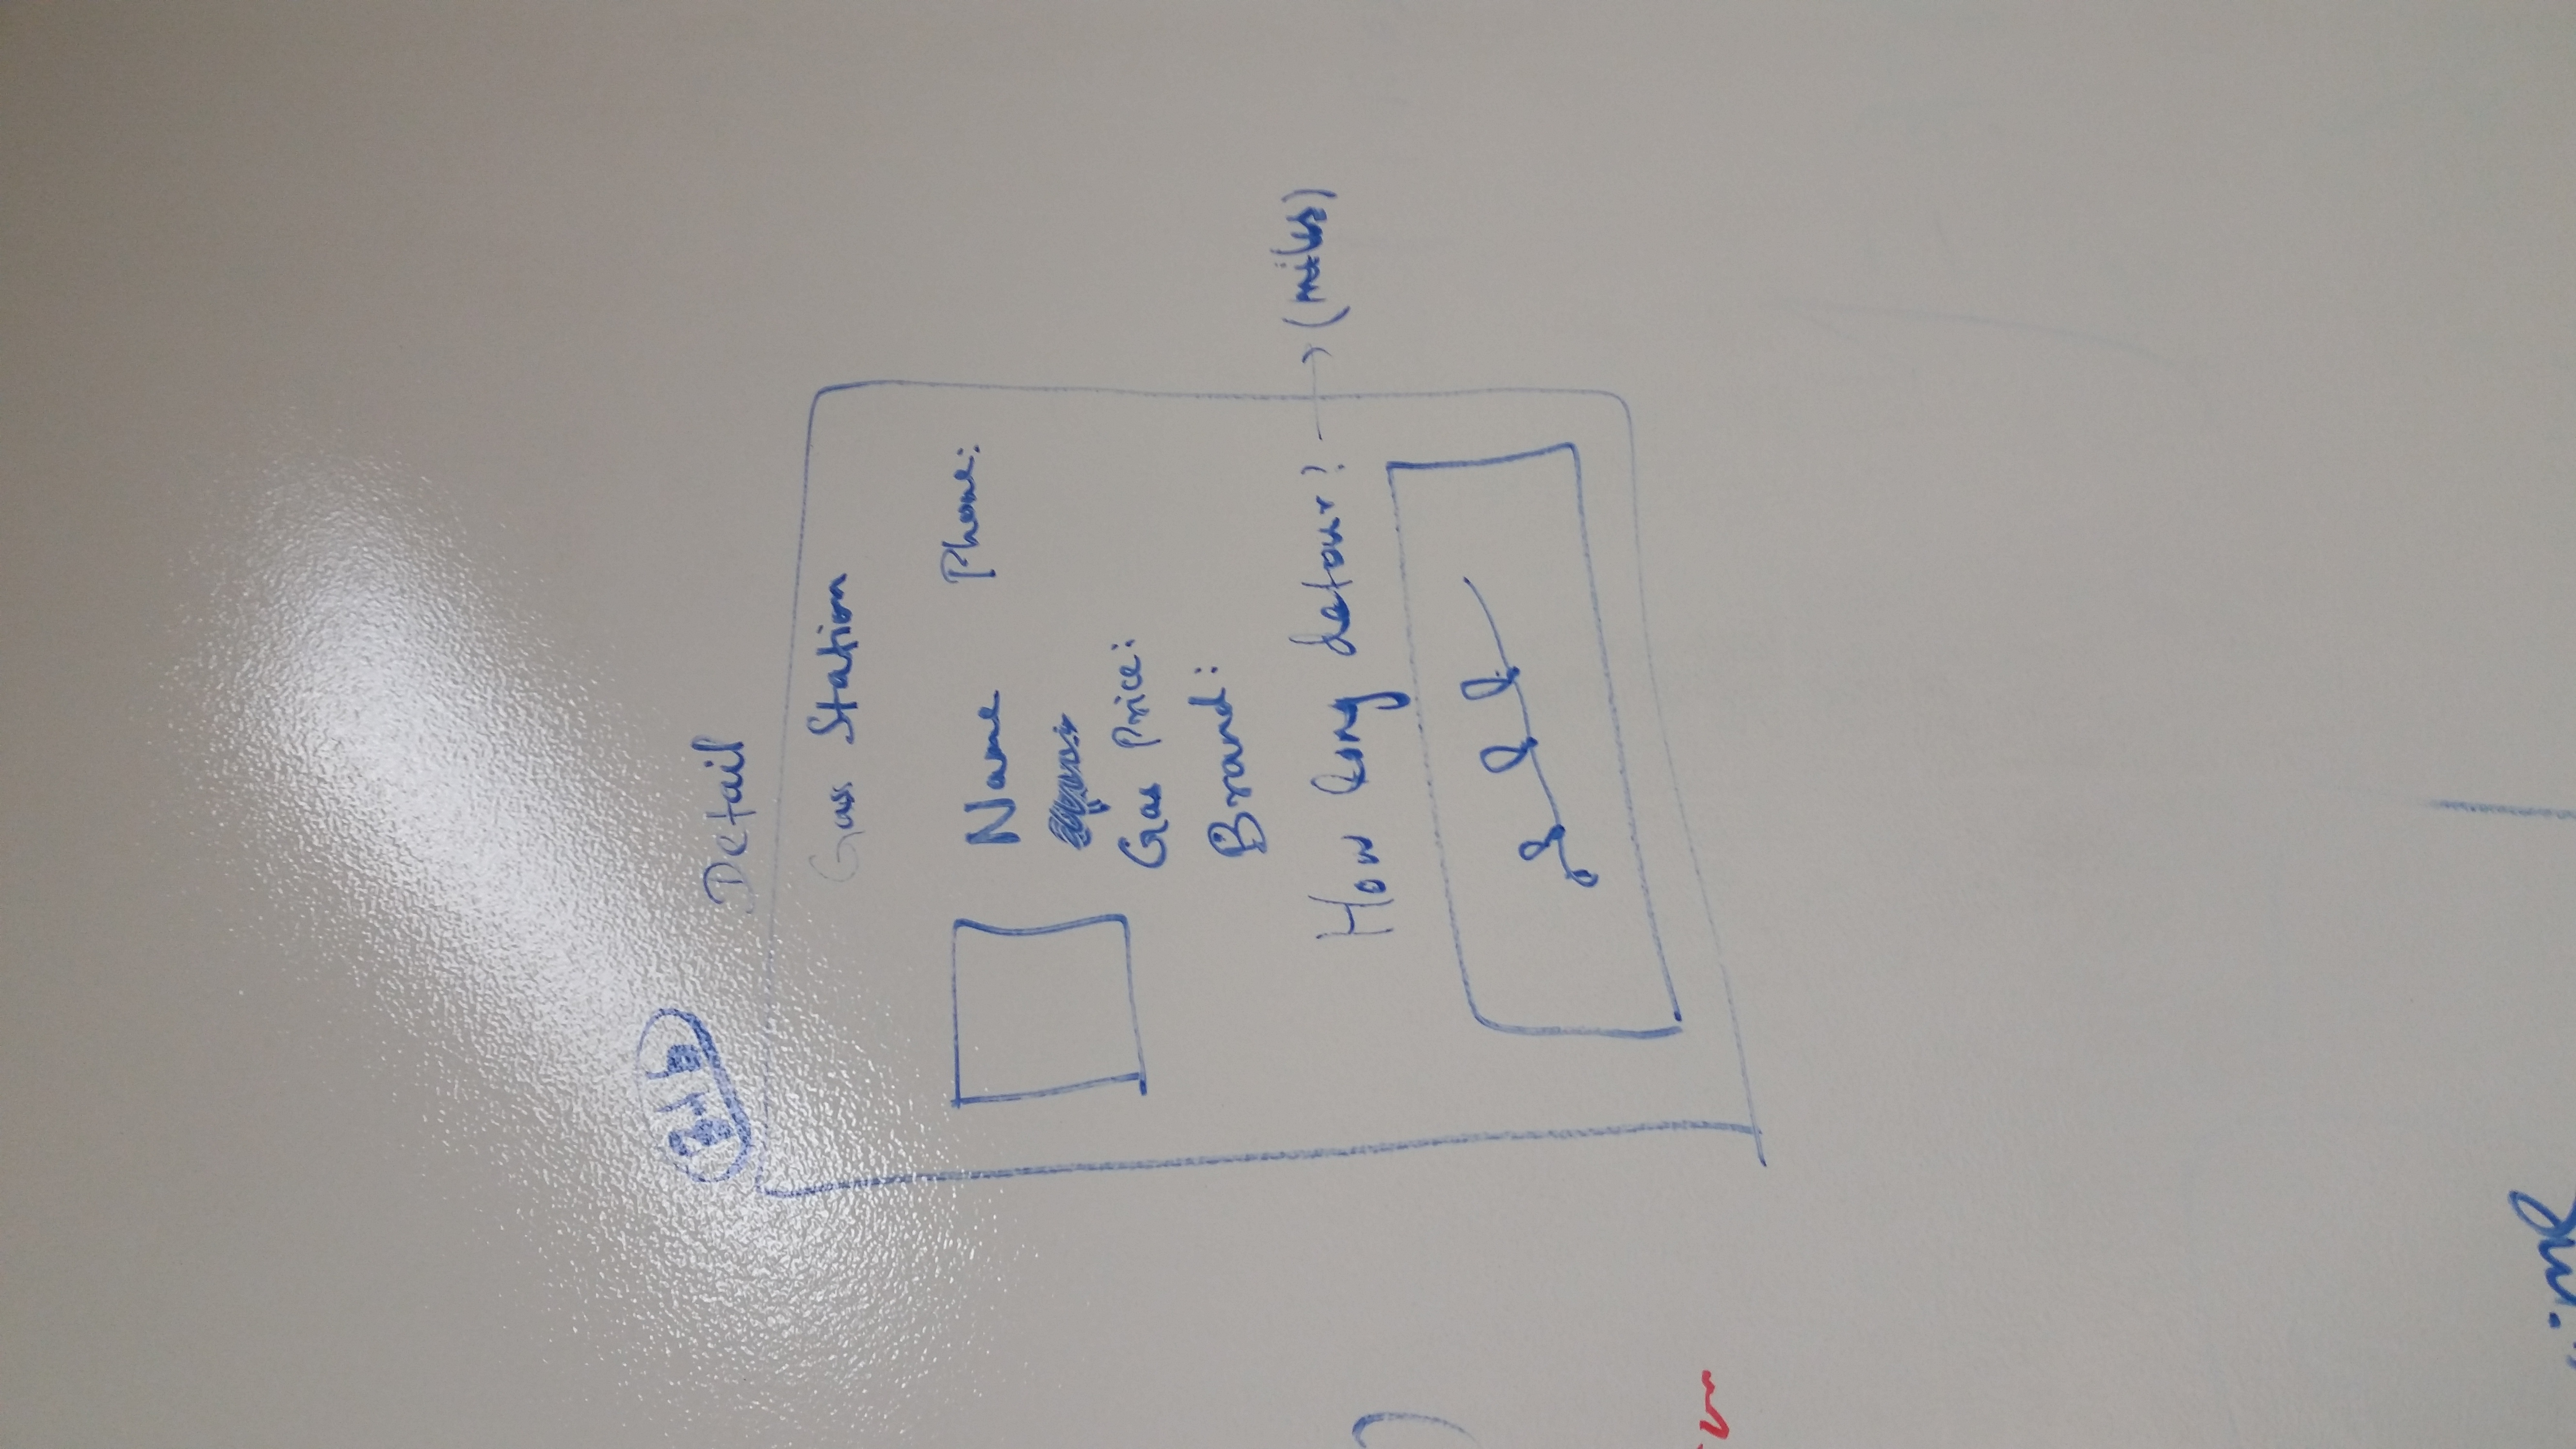 Detail
Gas Station
Name Phone:
Gas Price:
Brand:
How long detour? → (miles)